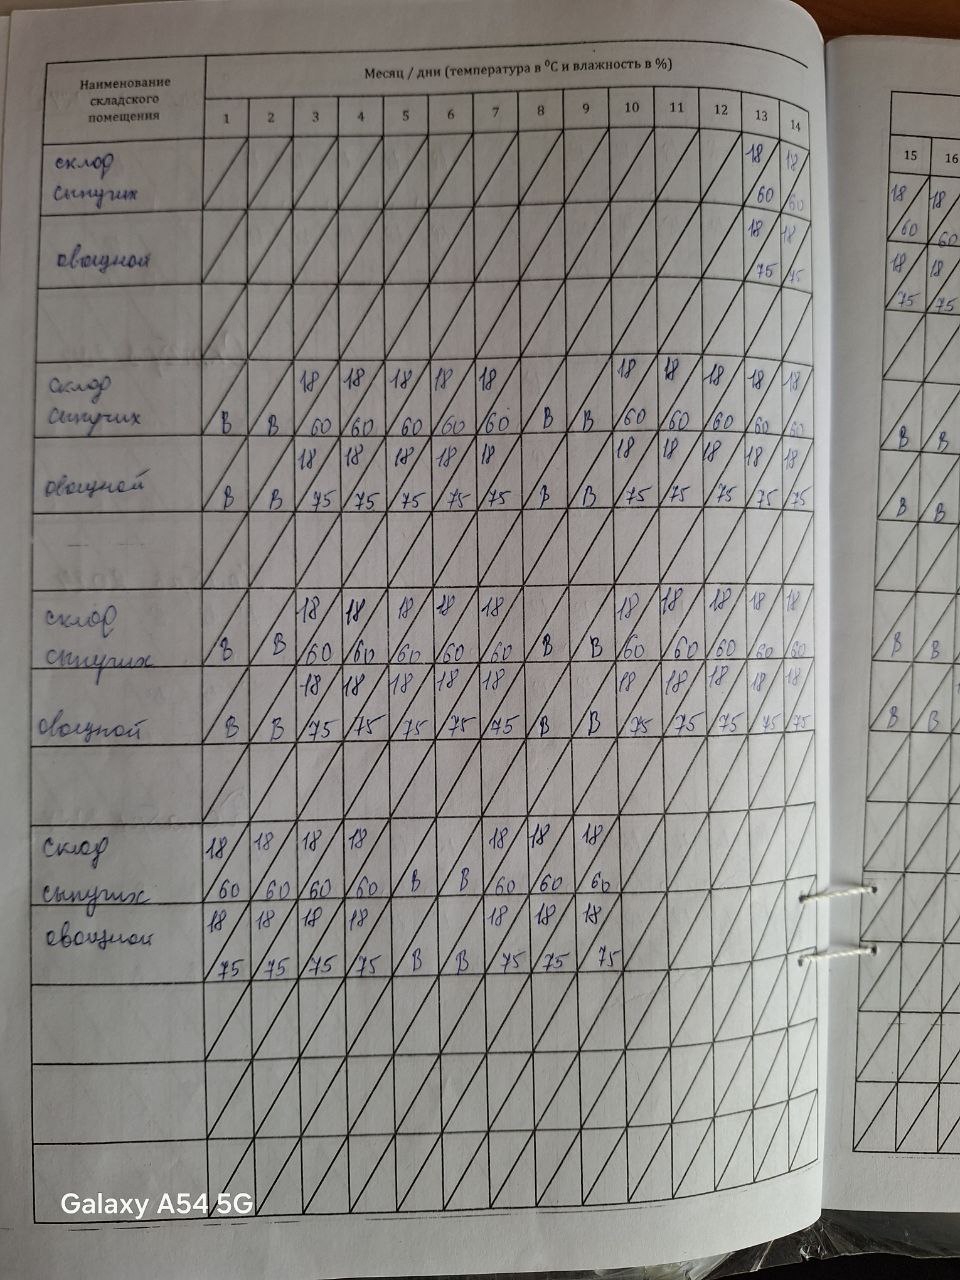 Месяц / дни (температура в ⁰С и влажность в %)
Наименование
складского
помещения
1 2 3 4 5 6 7 8 9 10 11 12 13 14
15 16
склад 18 18 18 18
сыпучих 60 60 60 60
18 18 18 18
овощной 75 75 75 75
склад 18 18 18 18 18 18 18 18 18 18
сыпучих В В 60 60 60 60 60 В В 60 60 60 60 60 В В
18 18 18 18 18 18 18 18 18 18
овощной В В 75 75 75 75 75 В В 75 75 75 75 75 В В
склад 18 18 18 18 18 18 18 18 18 18
сыпучих В В 60 60 60 60 60 В В 60 60 60 60 60 В В
18 18 18 18 18 18 18 18 18 18
овощной В В 75 75 75 75 75 В В 75 75 75 75 75 В В
склад 18 18 18 18 18 18 18
сыпучих 60 60 60 60 В В 60 60 60
овощной 18 18 18 18 18 18 18
75 75 75 75 В В 75 75 75
Galaxy A54 5G